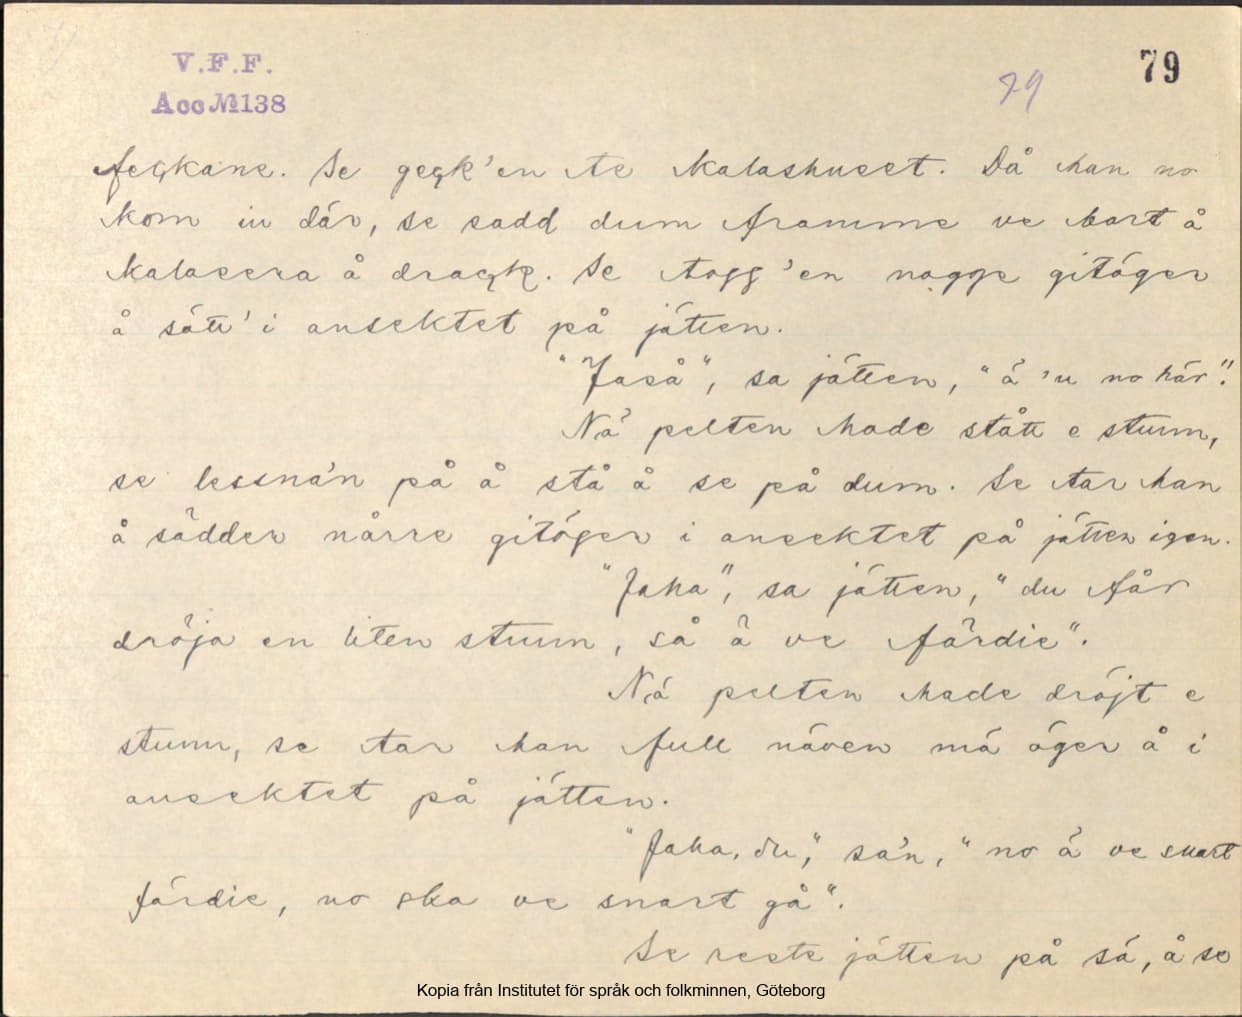 V.F.F.
Acc №138
79
79
feçkane. Se geçk'en te kalashuset. Då han no
kom in där, se sadd dum framme ve bort å
kalasera å draçk. Se togg 'en nagge gitöger
å sätt' i ansektet på jätten.
"Jaså", sa jätten, "ä 'u no här".
Nä pelten hade stått e stunn,
se lessna'n på å stå å se på dum. Se tar han
å sädder nårre gitöger i ansektet på jätten igen.
"Jaha", sa jätten, "du får
dröja en liten stunn, så ä ve färdie".
Nä pelten hade dröjt e
stunn, se tar han full näven mä öger å i
ansektet på jätten.
"Jaha, du", sa'n, "no ä ve snart
färdie, no ska ve snart gå".
Se reste jätten på sä, å se
Kopia från Institutet för språk och folkminnen, Göteborg